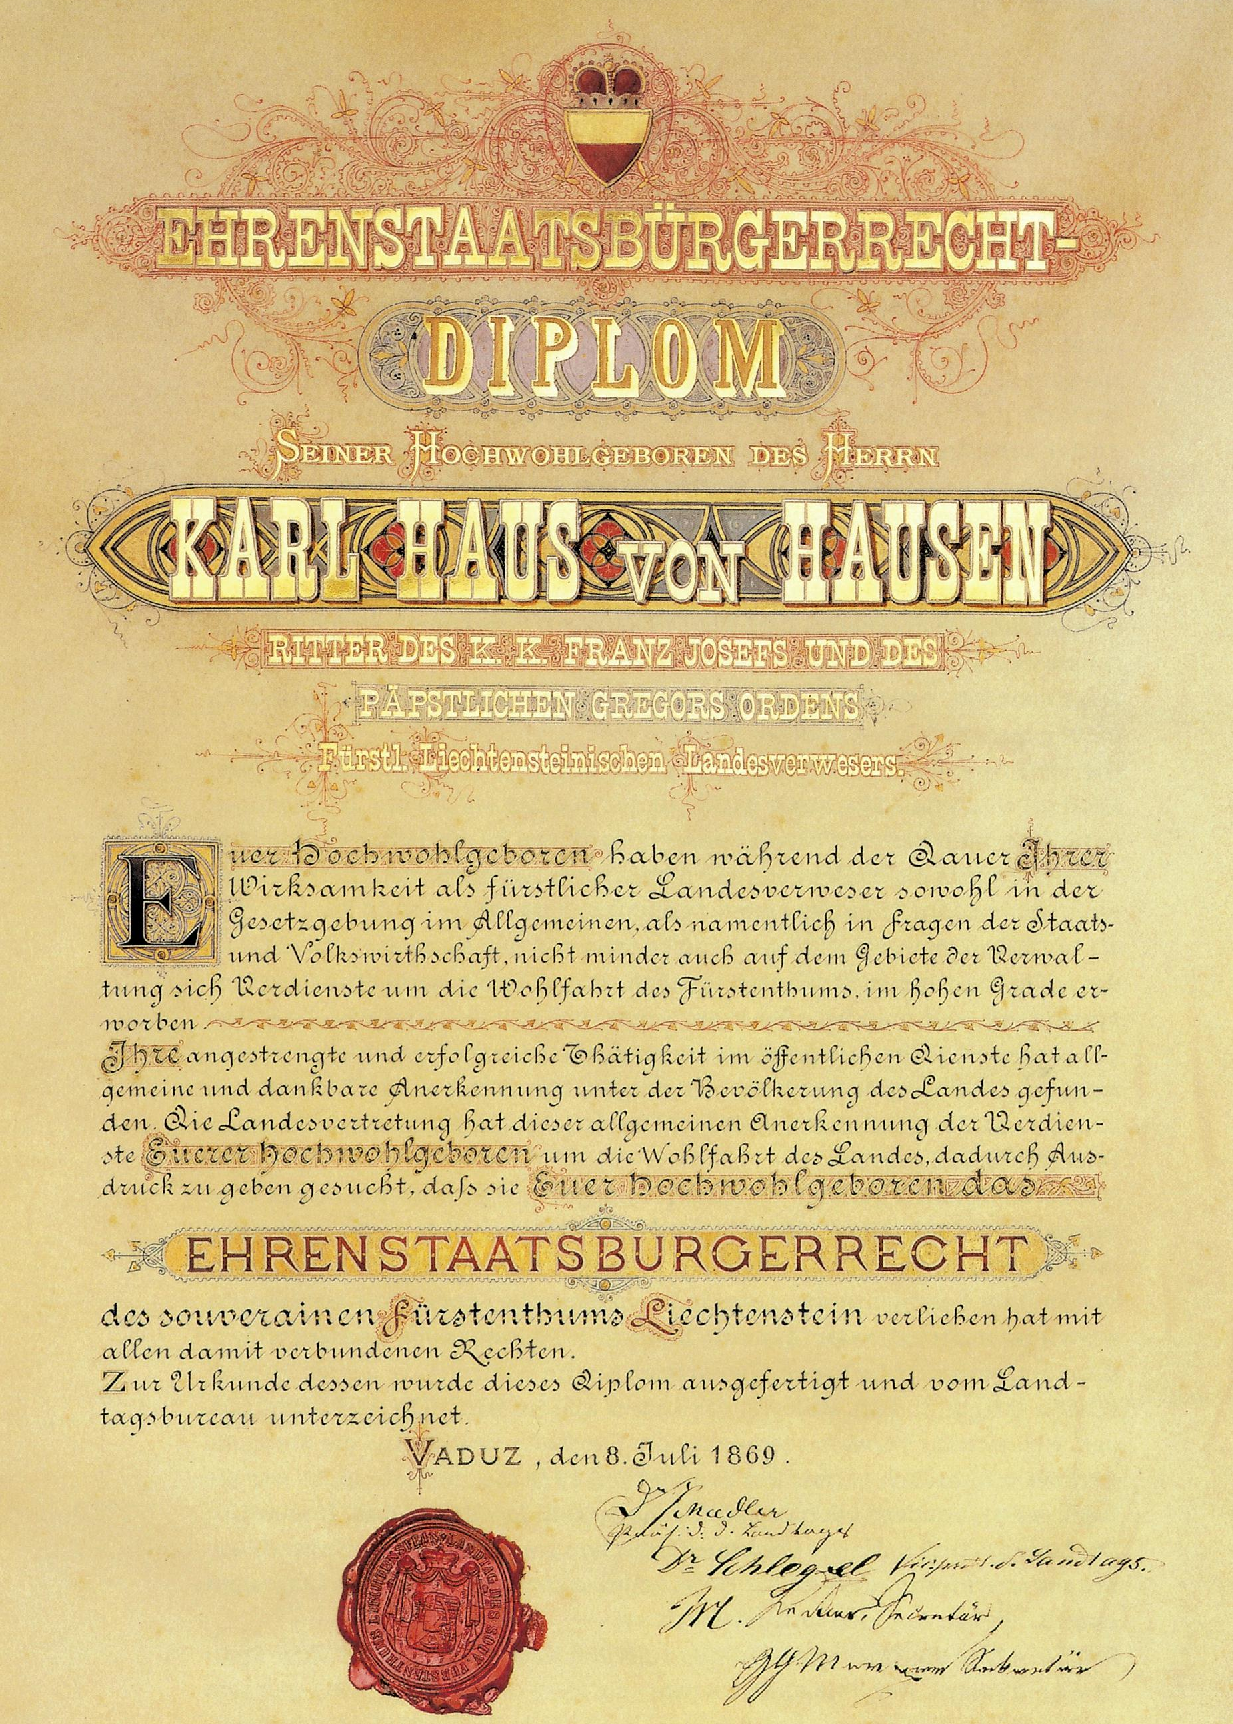 EHRENSTAATSBÜRGERRECHT-
DIPLOM
SEINER HOCHWOHLGEBOREN DES HERRN
KARL HAUS VON HAUSEN
RITTER DES K. K. FRANZ JOSEFS UND DES
PÄPSTLICHEN GREGORS ORDENS
Fürstl. Liechtensteinischen Landesverwesers.
Euer Hochwohlgeboren haben während der Dauer Ihrer
Wirksamkeit als fürstlicher Landesverweser sowohl in der
Gesetzgebung im Allgemeinen, als namentlich in Fragen der Staats-
und Volkswirthschaft, nicht minder auch auf dem Gebiete der Verwal-
tung sich Verdienste um die Wohlfahrt des Fürstenthums, im hohen Grade er-
worben
Ihre angestrengte und erfolgreiche Thätigkeit im öffentlichen Dienste hat all-
gemeine und dankbare Anerkennung unter der Bevölkerung des Landes gefun-
den. Die Landesvertretung hat dieser allgemeinen Anerkennung der Verdien-
ste Euerer Hochwohlgeboren um die Wohlfahrt des Landes, dadurch Aus-
druck zu geben gesucht, daſs sie Euer Hochwohlgeboren das
EHRENSTAATSBURGERRECHT
des souverainen Fürstenthums Liechtenstein verliehen hat mit
allen damit verbundenen Rechten.
Zur Urkunde dessen wurde dieses Diplom ausgefertigt und vom Land-
tagsbureau unterzeichnet.
VADUZ, den 8. Juli 1869.
Dr Schaedler
Präs. d. Landtages
Dr Schlegel Vicepräs. d. Landtags.
M. Secretär,
Sekretär